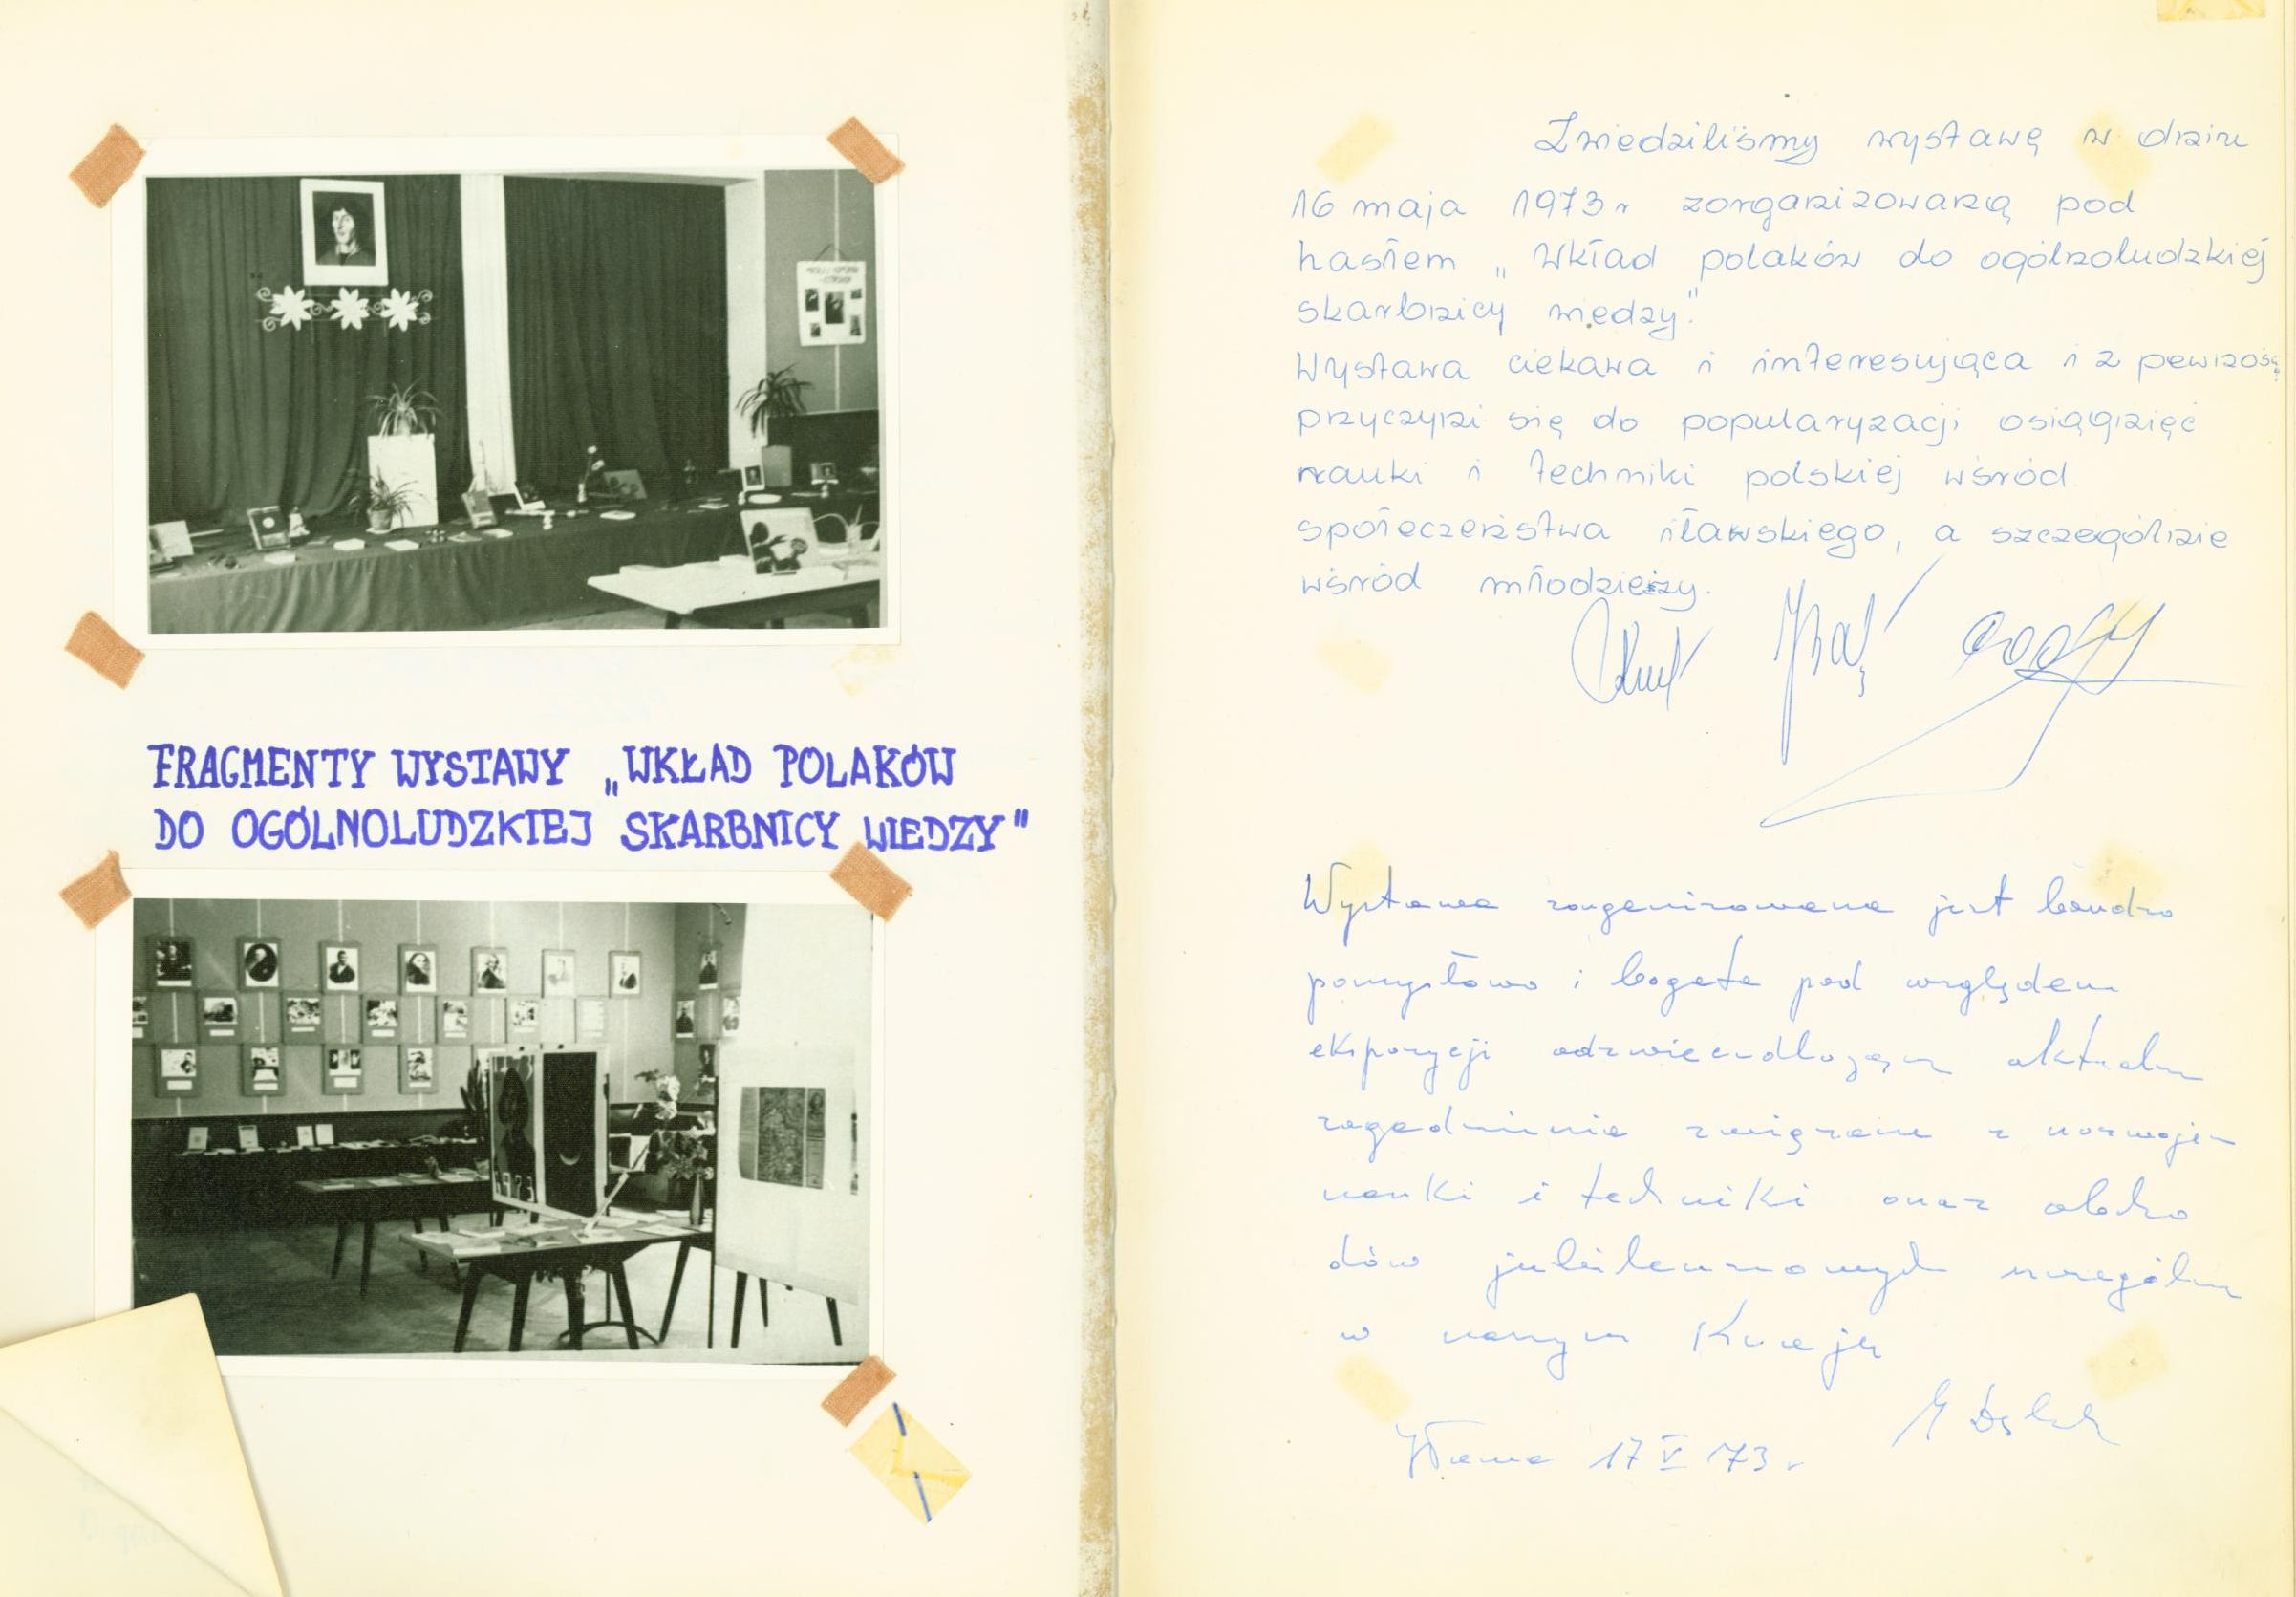 FRAGMENTY WYSTAWY „WKŁAD POLAKÓW
DO OGÓLNOLUDZKIEJ SKARBNICY WIEDZY"
1973
Zwiedziliśmy wystawę w dniu
16 maja 1973r zorganizowaną pod
hasłem „Wkład polaków do ogólnoludzkiej
skarbnicy wiedzy."
Wystawa ciekawa i interesująca i z pewnością
przyczyni się do popularyzacji osiągnięć
nauki i techniki polskiej wśród
społeczeństwa iławskiego, a szczególnie
wśród młodzieży.
Wystawa zorganizowana jest bardzo
pomysłowo i bogata pod względem
ekspozycji odzwierciedlająca aktualne
zagadnienia związane z rozwojem
nauki i techniki oraz obcho
dów jubileuszowych szczególnie
w naszym Kraju
Iława 17 V 73 r